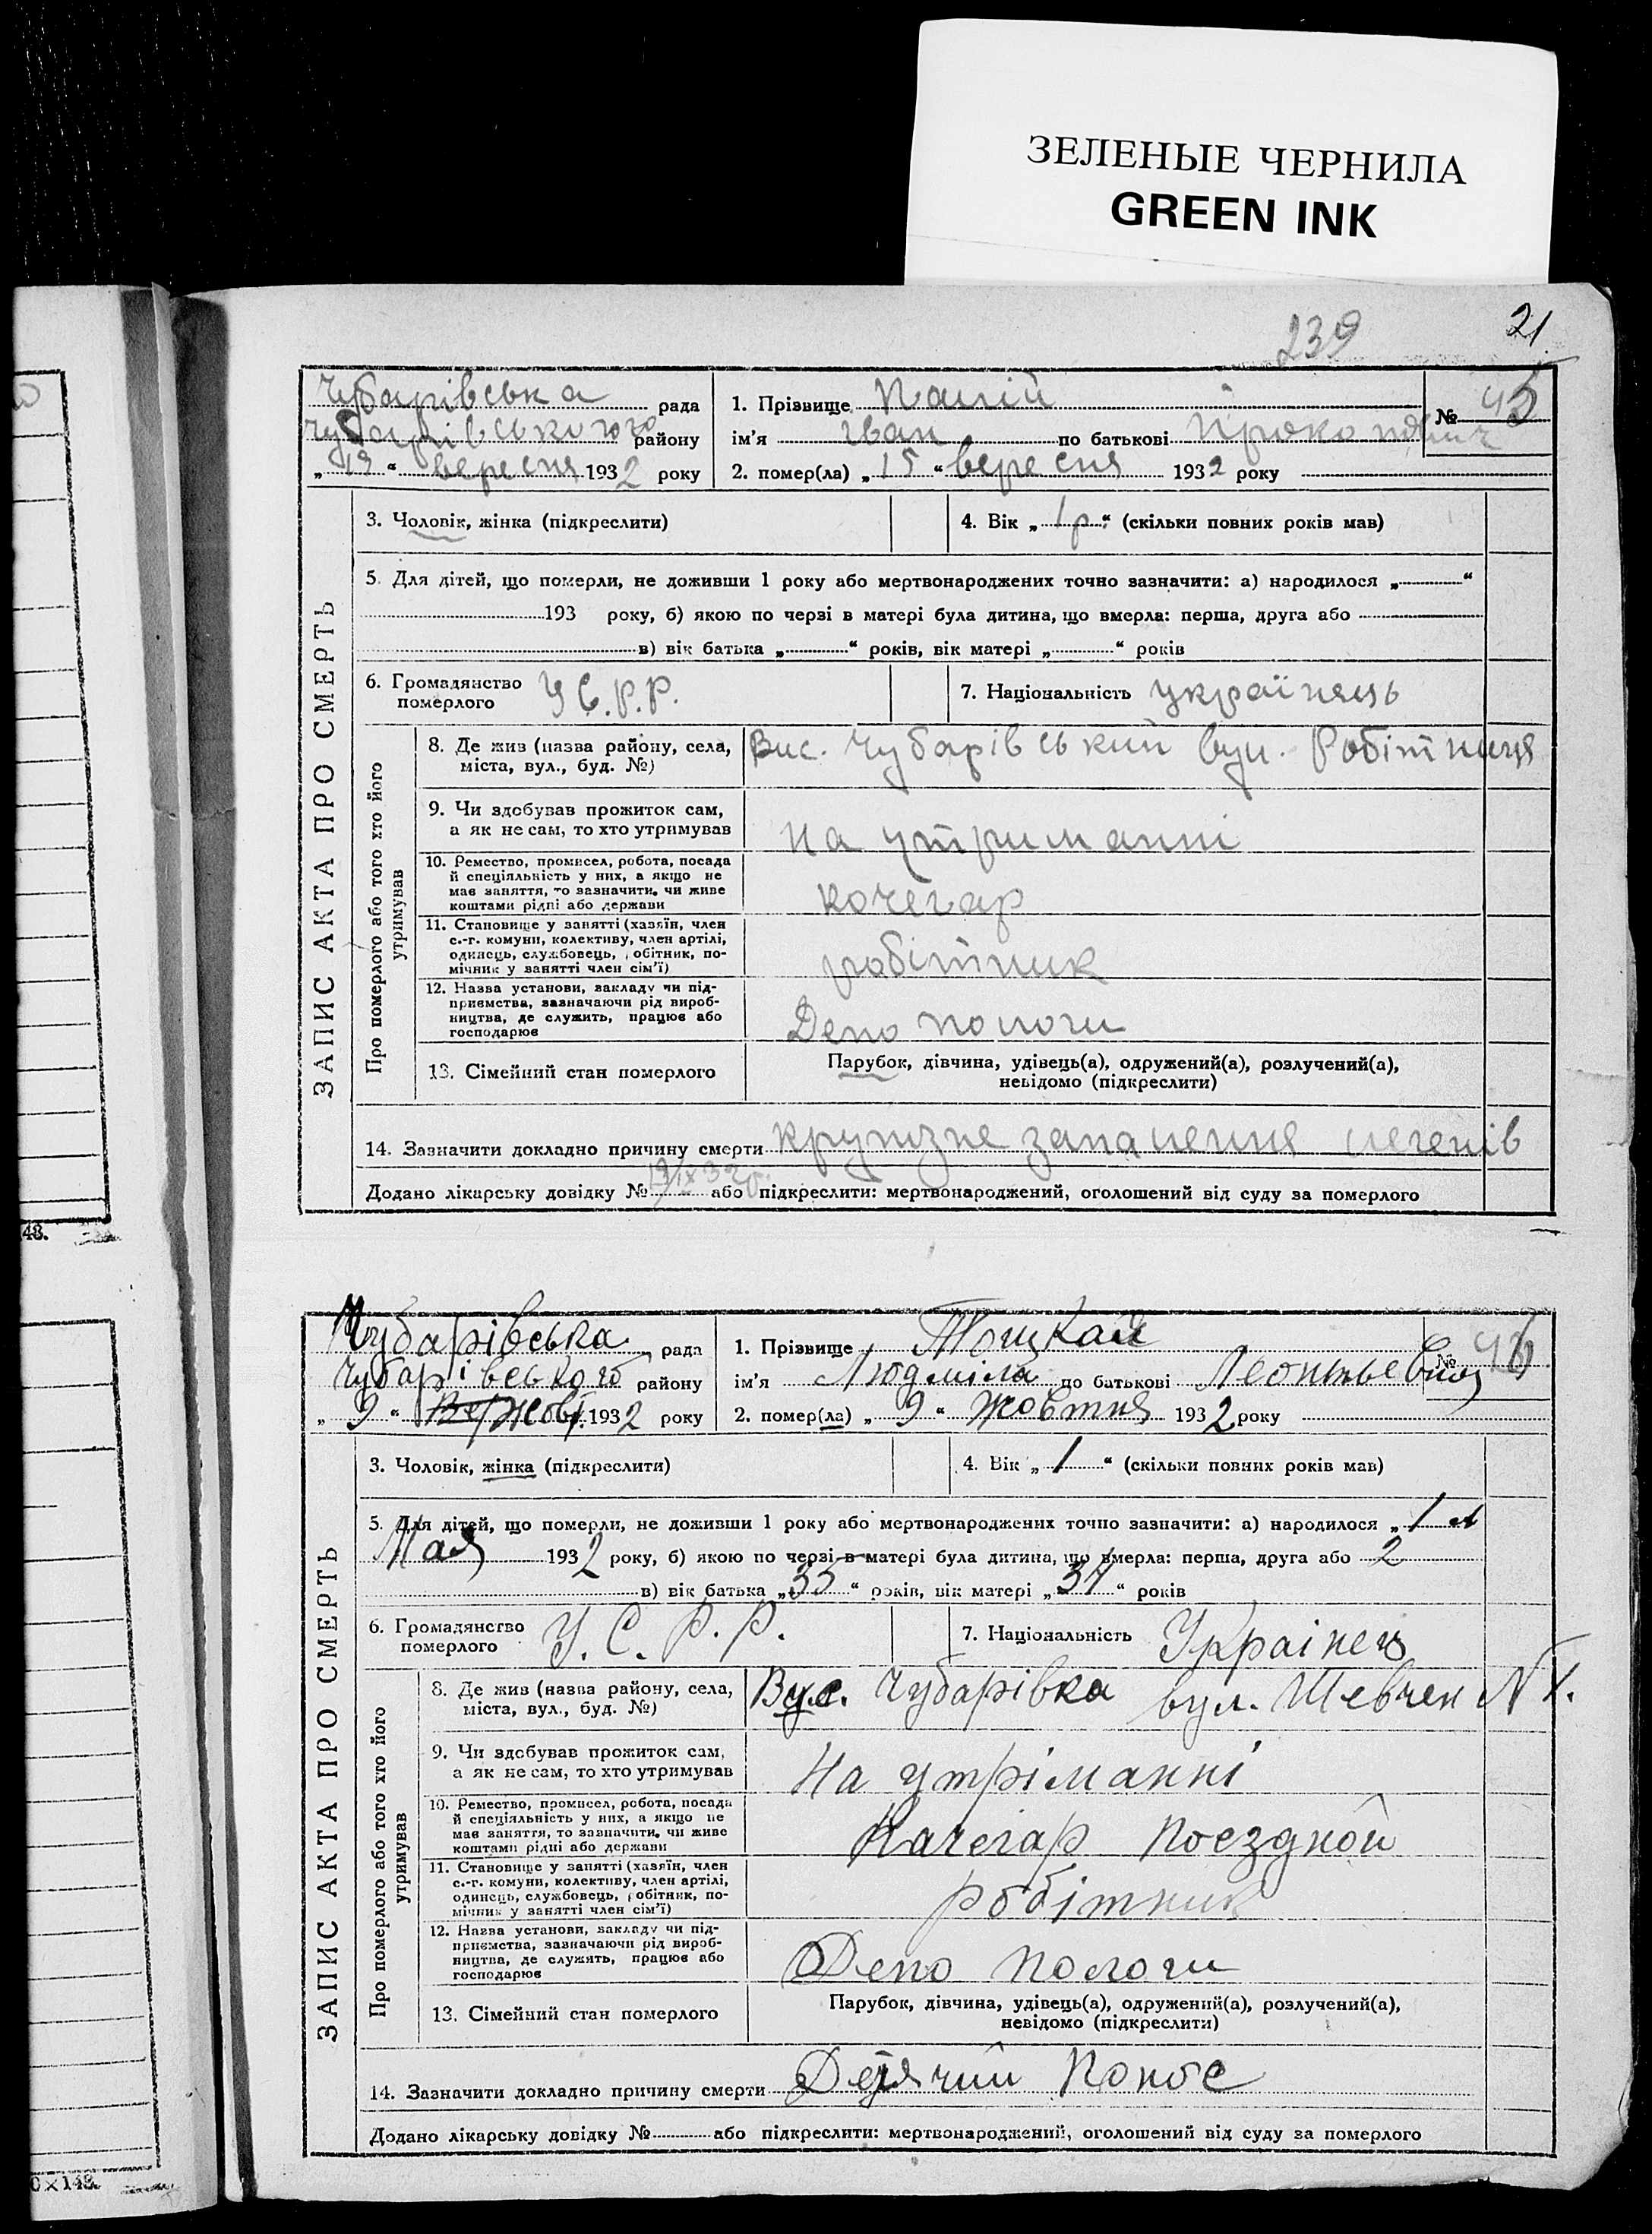 ЗЕЛЕНЫЕ ЧЕРНИЛА
GREEN INK
239
21
Чубарівська рада
Чубарівського району
„ 19 “ вересня 1932 року
1. Прізвище Палій
ім’я Іван по батькові
№ 45
2. помер(ла) „ 15 “ вересня 1932 року
ЗАПИС АКТА ПРО СМЕРТЬ
3. Чоловік, жінка (підкреслити)
4. Вік „ 1 р. “ (скільки повних років мав)
5. Для дітей, що померли, не доживши 1 року або мертвонароджених точно зазначити: а) народилося „ “
193 року, б) якою по черзі в матері була дитина, що вмерла: перша, друга або
в) вік батька „ “ років, вік матері „ “ років
6. Громадянство
померлого У С.Р.Р.
7. Національність українець
Про померлого або того хто його
утримував
8. Де жив (назва району, села,
міста, вул., буд. №)
Вис. Чубарівський вул. Робітниця
9. Чи здобував прожиток сам,
а як не сам, то хто утримував
на утриманні
10. Ремество, промисел, робота, посада
й спеціяльність у них, а якщо не
має заняття, то зазначити, чи живе
коштами рідні або держави
кочегар
11. Становище у занятті (хазяїн, член
с.-г. комуни, колективу, член артілі,
одинець, службовець, робітник, по-
мічник у занятті член сім’ї)
робітник
12. Назва установи, закладу чи під-
приємства, зазначаючи рід вироб-
ництва, де служить, працює або
господарює
Депо пологи
13. Сімейний стан померлого
Парубок, дівчина, удівець(а), одружений(а), розлучений(а),
невідомо (підкреслити)
14. Зазначити докладно причину смерти крупізне запалення легенів
Додано лікарську довідку № 19/IX 32 р. або підкреслити: мертвонароджений, оголошений від суду за померлого
48.
Чубарівська рада
Чубарівського району
„ 9 “ Жовт. 1932 року
1. Прізвище Тоцкая
ім’я Людміла по батькові Леонтьевна
№ 46
2. помер(ла) „ 9 “ Жовтня 1932 року
ЗАПИС АКТА ПРО СМЕРТЬ
3. Чоловік, жінка (підкреслити)
4. Вік „ 1 “ (скільки повних років мав)
5. Для дітей, що померли, не доживши 1 року або мертвонароджених точно зазначити: а) народилося „ 1 “
Мая 1932 року, б) якою по черзі в матері була дитина, що вмерла: перша, друга або 2
в) вік батька „ 35 “ років, вік матері „ 34 “ років
6. Громадянство
померлого У. С. Р. Р.
7. Національність Українец
Про померлого або того хто його
утримував
8. Де жив (назва району, села,
міста, вул., буд. №)
Вус. Чубарівка вул. Шевчен N 1.
9. Чи здобував прожиток сам,
а як не сам, то хто утримував
На утріманні
10. Ремество, промисел, робота, посада
й спеціяльність у них, а якщо не
має заняття, то зазначити, чи живе
коштами рідні або держави
Качегар поездной
11. Становище у занятті (хазяїн, член
с.-г. комуни, колективу, член артілі,
одинець, службовець, робітник, по-
мічник у занятті член сім’ї)
робітник
12. Назва установи, закладу чи під-
приємства, зазначаючи рід вироб-
ництва, де служить, працює або
господарює
Депо пологи
13. Сімейний стан померлого
Парубок, дівчина, удівець(а), одружений(а), розлучений(а),
невідомо (підкреслити)
14. Зазначити докладно причину смерти Детячий понос
Додано лікарську довідку № або підкреслити: мертвонароджений, оголошений від суду за померлого
0×148.